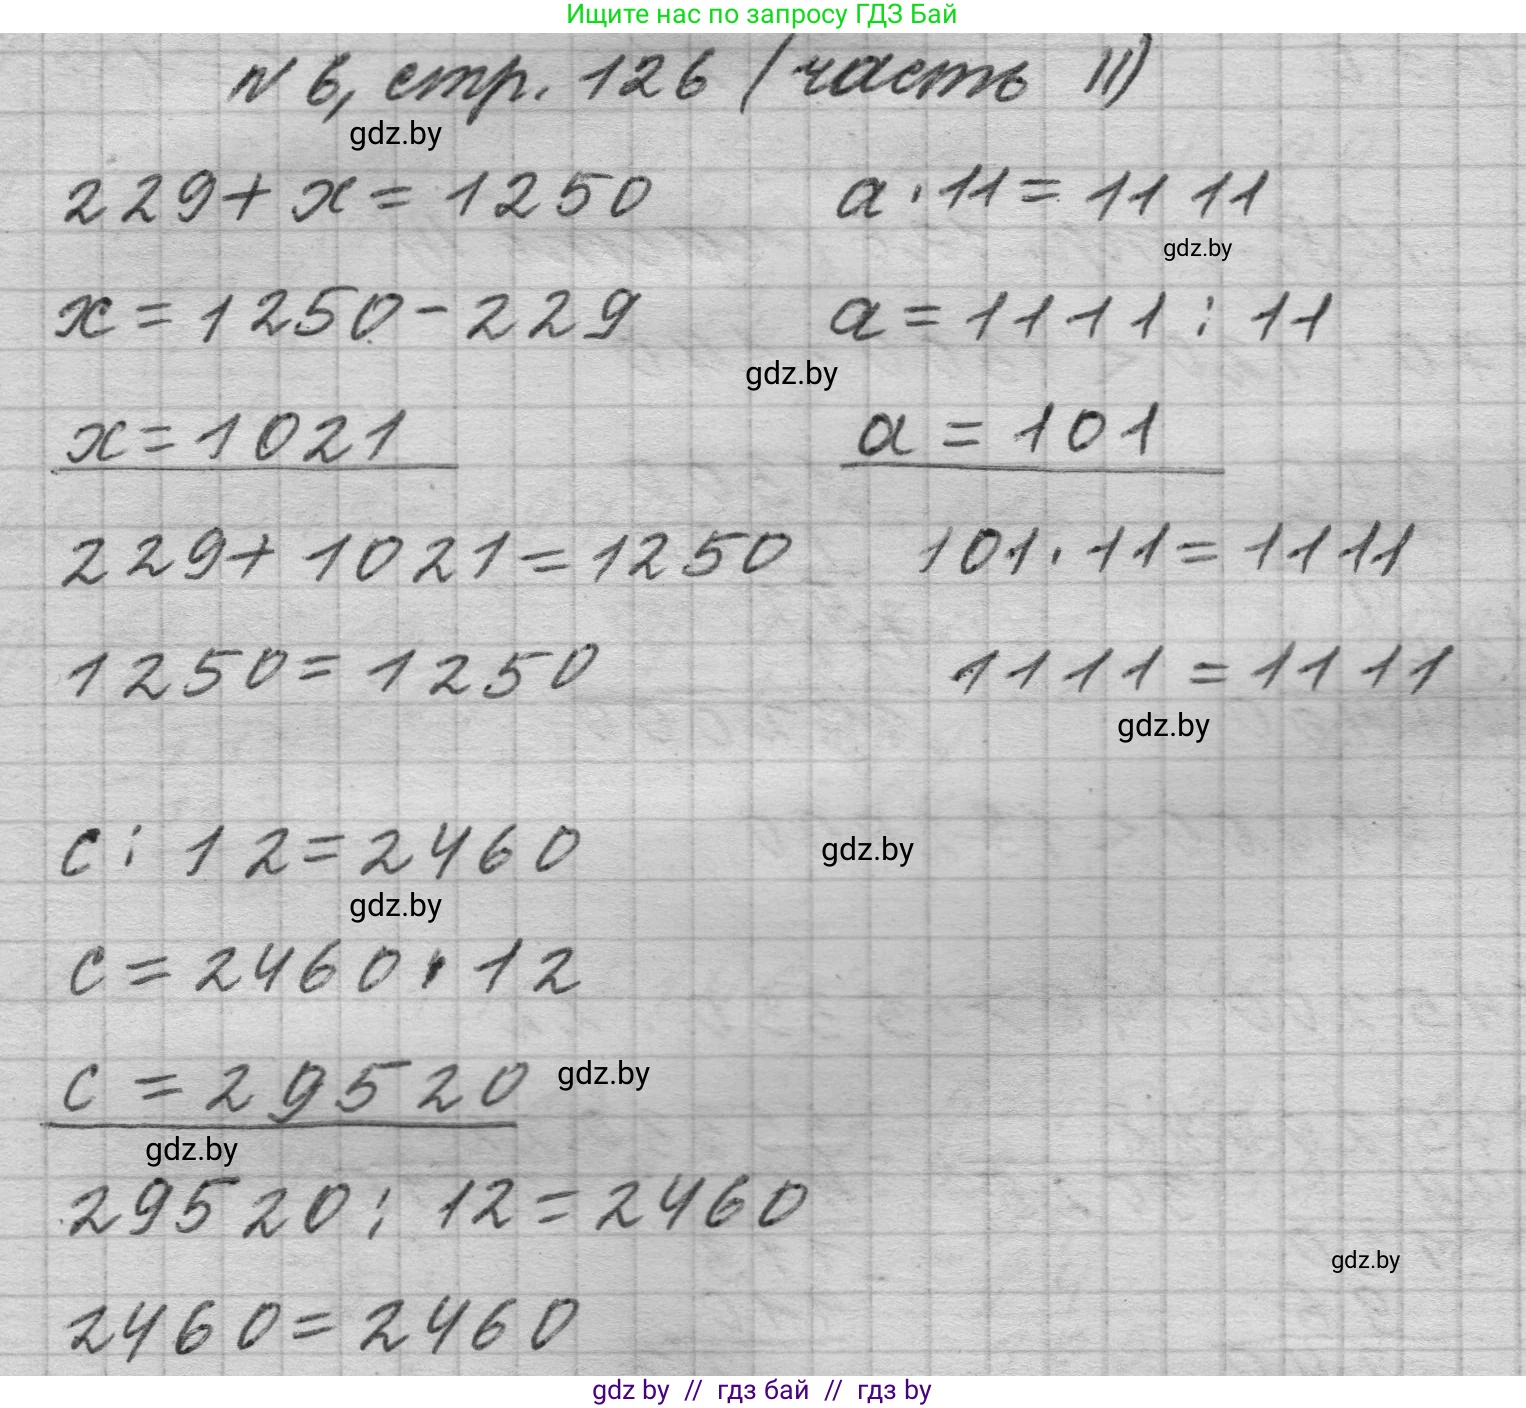 Ищите нас по запросу ГДЗ Бай
№ 6, стр. 126 (часть II)
gdz.by
229 + x = 1250
x = 1250 - 229
x = 1021
229 + 1021 = 1250
1250 = 1250
a · 11 = 1111
gdz.by
a = 1111 : 11
gdz.by
a = 101
101 · 11 = 1111
1111 = 1111
gdz.by
c : 12 = 2460
gdz.by
gdz.by
c = 2460 · 12
c = 29520
gdz.by
gdz.by
29520 : 12 = 2460
gdz.by
2460 = 2460
gdz by // гдз бай // гдз by